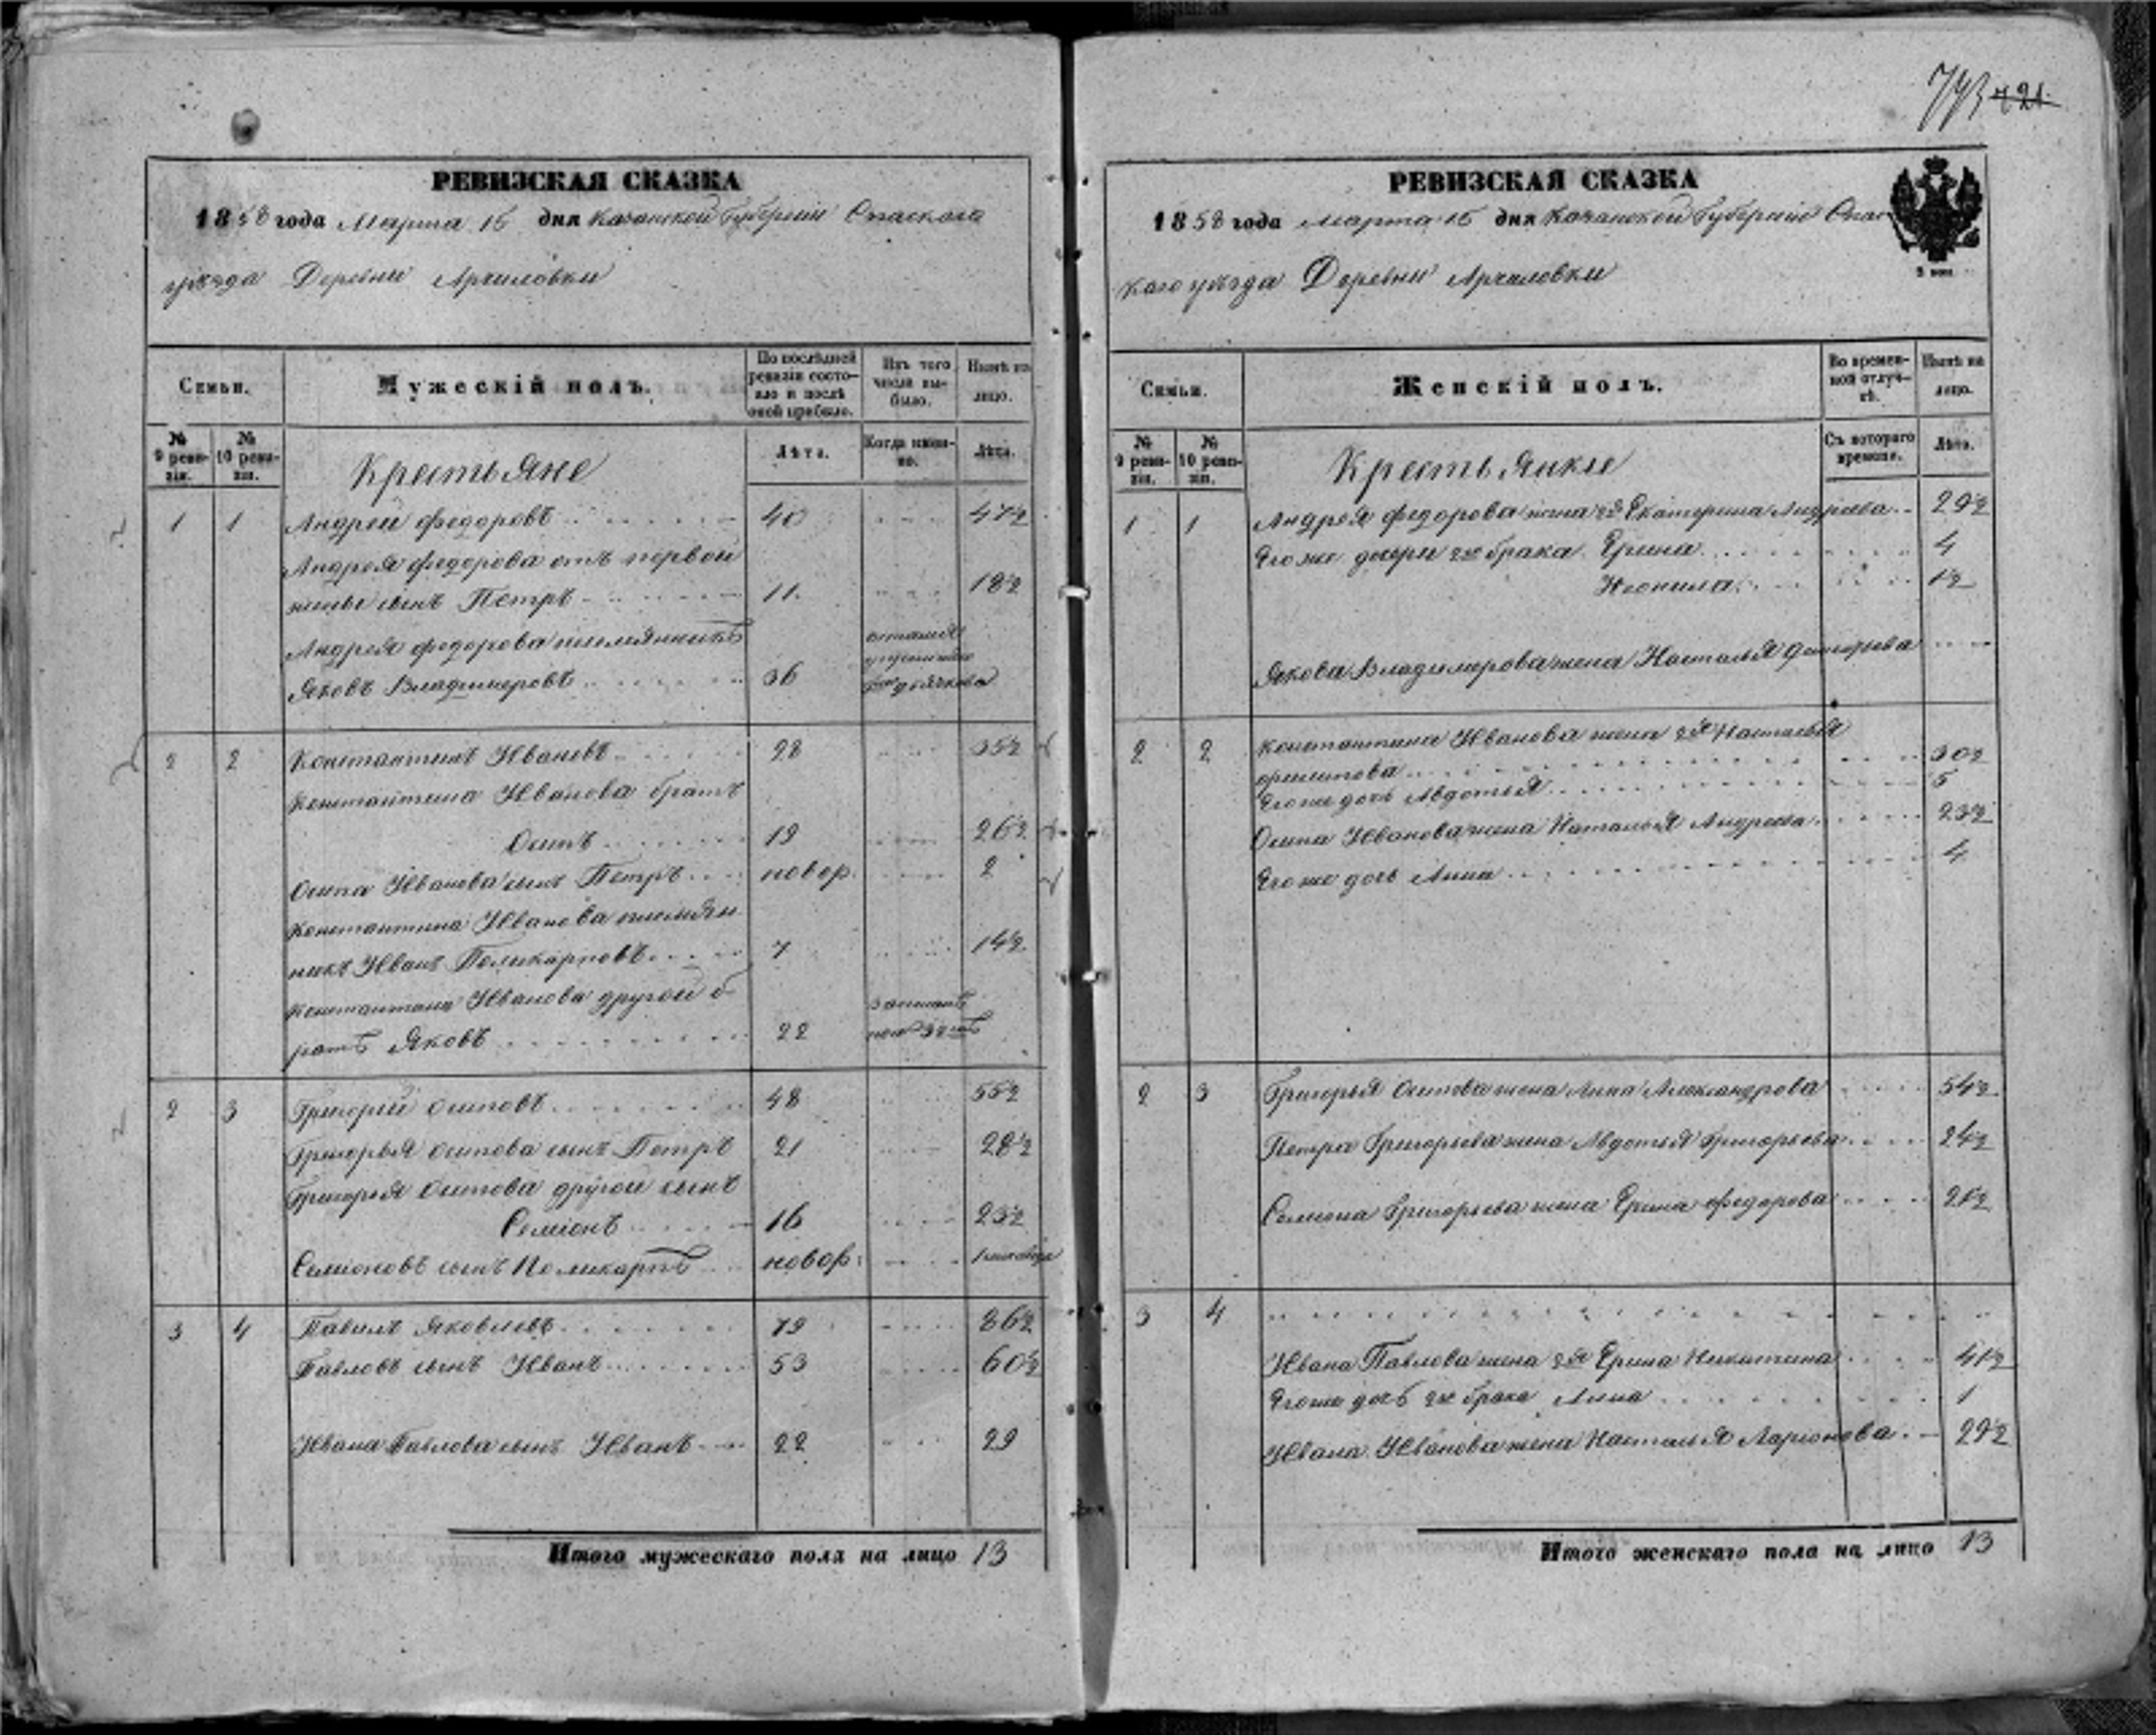 743 421
РЕВИЗСКАЯ СКАЗКА
1858 года Марта 15 дня Казанской Губернiи Спаскаго
уѣзда Деревни Арчиловки
Семьи.
Мужескiй полъ.
По послѣдней ревизiи состояло и послѣ оной прибыло.
Изъ того числа выбыло.
Нынѣ на лицо.
№ 9 ревизiи.
№ 10 ревизiи.
Крестьяне
Лѣта.
Когда именно.
Лѣта.
1 1 Андрей Федоровъ 40 47½
Андрея Федорова отъ первой
жены сынъ Петръ 11. 18½
Андрея Федорова племянникъ
Яковъ Владимеровъ 36
2 2 Константинъ Ивановъ 28 35½
Константина Иванова братъ
Осипъ 19 26½
Осипа Иванова сынъ Петръ новор. 2
Константина Иванова племян
никъ Иванъ Поликарповъ 7 14½
Константина Иванова другой б
ратъ Яковъ 22
2 3 Григорiй Осиповъ 48 55½
Григорья Осипова сынъ Петръ 21 28½
Григорья Осипова другой сынъ
Семiонъ 16 23½
Семiоновъ сынъ Поликарпъ новор:
3 4 Павилъ Яковлевъ 79 86½
Павловъ сынъ Иванъ 53 60½
Ивана Павлова сынъ Иванъ 22 29
Итого мужескаго пола на лицо 13
РЕВИЗСКАЯ СКАЗКА
1858 года марта 15 дня Казанской Губернiи Спас
каго уѣзда Деревни Арчиловки
Семьи.
Женскiй полъ.
Во временной отлучкѣ.
Нынѣ на лицо.
№ 9 ревизiи.
№ 10 ревизiи.
Крестьянки
Съ котораго времени.
Лѣта.
1 1 Андрея Федорова жена 2я Екатерина Андреева 29½
Его же дочери 2го брака Ерина 4
Неонила 1½
Якова Владимерова жена Наталья Григорьева
2 2 Константина Иванова жена 2я Наталья
Филипова 30½
Его же дочь Авдотья 5
Осипа Иванова жена Наталья Андреева 23½
Его же дочь Анна 4
2 3 Григорья Осипова жена Анна Александрова 54½
Петра Григорьева жена Авдотья Григорьева 24½
Семiона Григорьева жена Ерина Федорова 21½
3 4
Ивана Павлова жена 2я Ерина Никитина 41½
Его же дочь 2го брака Анна 1
Ивана Иванова жена Наталья Ларiонова 29½
Итого женскаго пола на лицо 13